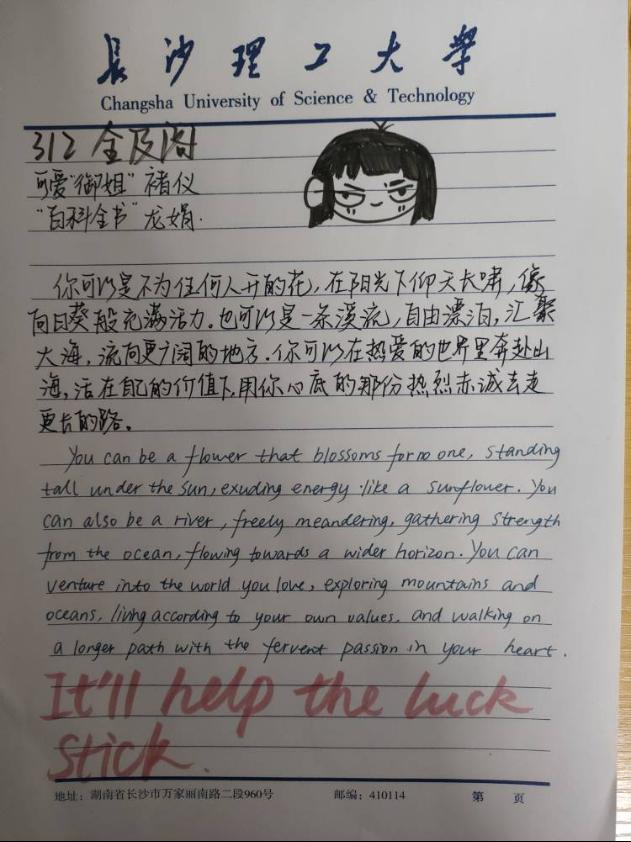 長沙理工大學
Changsha University of Science & Technology
312 金及阁
可爱“御姐” 褚仪
“百科全书” 龙娟.
你可以是不为任何人开的花，在阳光下仰天长啸，像
向日葵般充满活力.也可以是一条溪流，自由漂泊，汇聚
大海，流向更广阔的地方.你可以在热爱的世界里奔赴山
海，活在自己的价值下,用你心底的那份热烈赤诚去走
更长的路。
You can be a flower that blossoms for no one, standing
tall under the sun, exuding energy like a sunflower. You
can also be a river, freely meandering, gathering strength
from the ocean, flowing towards a wider horizon. You can
venture into the world you love, exploring mountains and
oceans, living according to your own values, and walking on
a longer path with the fervent passion in your heart.
It'll help the luck
stick.
地址：湖南省长沙市万家丽南路二段960号 邮编：410114 第 页